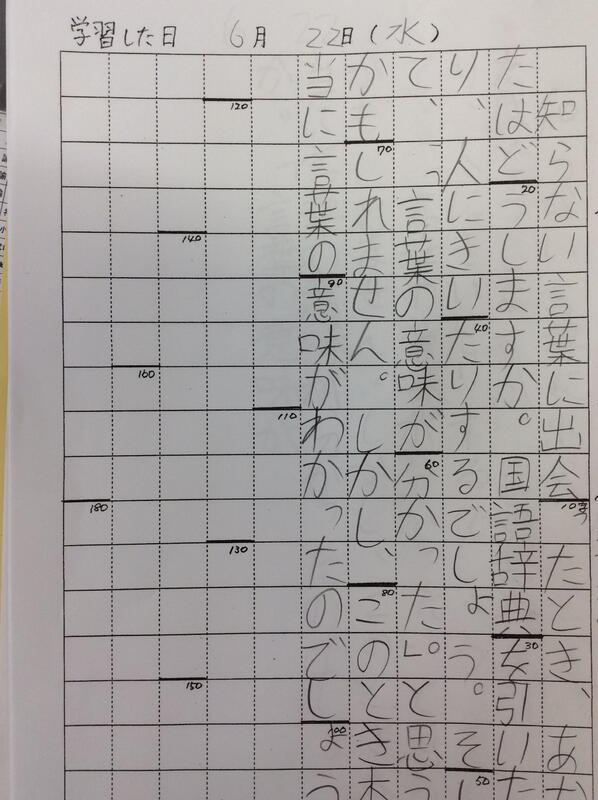 学習した日 6月 22日(水)
知らない言葉に出会ったとき、あな
たはどうしますか。国語辞典を引いた
り、人にきいたりするでしょう。そし
て、「言葉の意味が分かった」と思う
かもしれません。しかし、このとき本
当に言葉の意味がわかったのでしょう
10
20
30
40
50
60
70
80
90
100
110
120
130
140
150
160
180